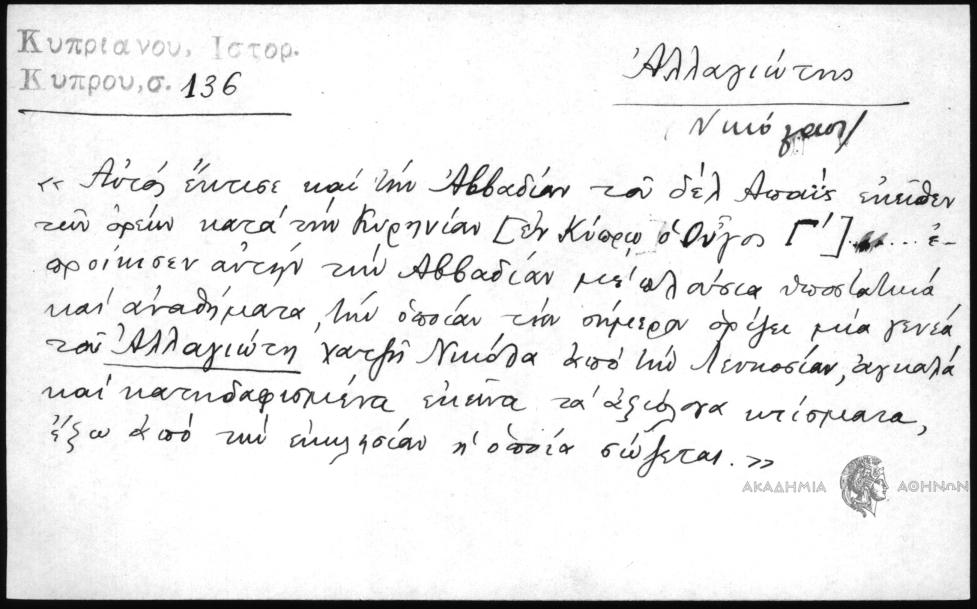 Κυπριανου, Ιστορ.
Κυπρου, σ. 136
Ἀλλαγιώτης
Νικόχρουσ/
« Αὐτὸς ἔκτισε καὶ τὴν Ἀββαδίαν τοῦ δὲλ Απαΐς ἐκεῖθεν
τῶν ὀρέων κατὰ τὴν Κυρηνίαν [ἐν Κύπρῳ ὁ Οὖγος Γ΄]....... ἐ-
προίκισεν αὐτὴν τὴν Ἀββαδίαν μὲ πλούσια ὑποστατικὰ
καὶ ἀναθήματα, τὴν ὁποίαν τὴν σήμερον ὁρίζει μία γενεὰ
τοῦ Ἀλλαγιώτη χατζῆ Νικόλα ἀπὸ τὴν Λευκοσίαν, ἀγκαλὰ
καὶ κατηδαφισμένα ἐκεῖνα τὰ ἀξιόλογα κτίσματα,
ἔξω ἀπὸ τὴν ἐκκλησίαν ἡ ὁποία σώζεται. »
ΑΚΑΔΗΜΙΑ ΑΘΗΝΩΝ